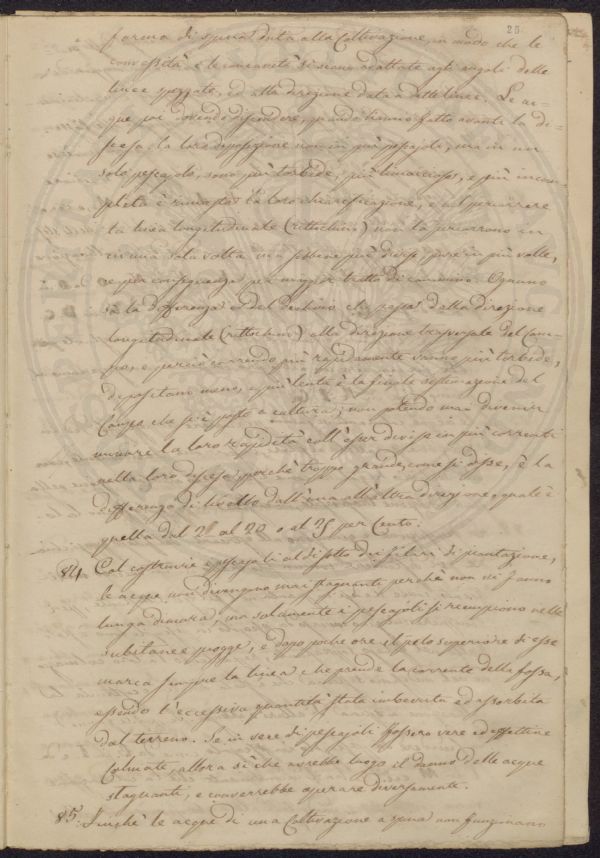 25
forma di spina data alla Coltivazione, in modo che le
convessità e le concavità si siano adattate agli angoli delle
linee spezzate, ed alla direzione data a dette linee. Le ac=
que poi dovendo discendere, quando hanno fatto avanti la di=
scesa, la loro deposizione non in più pescajoli, ma in un
solo pescajolo, sono più torbide, più limacciose, e più incom
pleta è rimasta la loro chiarificazione, e nel percorrere
la linea longitudinale (rittochina) non la percorrono in
in una sola volta ma sebbene più divise, pure in più volte,
e per conseguenza per maggior tratto di cammino. Ognuno
sa la differenza del declivio che passa dalla direzione
longitudinale (rittochina) alla direzione trasversale del Cam=
po, e perciò correndo più rapidamente vanno più torbide,
depositano meno, e più lenta è la finale sistemazione del
Campo che si è posto a cultura; non potendo mai divenir
minore la loro rapidità coll'esser divise in più correnti
nella loro discesa, perchè troppo grande, come si disse, è la
differenza di livello dall'una all'altra direzione, quale è
quella dal 2 al 20 o al 25 per Cento.
84 Col costruire i pescajoli al disotto dei filari di piantazione,
le acque non divengono mai stagnanti perchè non vi fanno
lunga dimora, ma solamente i pescajoli si riempiono nelle
subitanee piogge, e dopo poche ore il pelo superiore di esse
marca sempre la linea che prende la corrente della fossa,
essendo l'eccessiva quantità stata imbevuta ed assorbita
dal terreno. Se in vece di pescajoli fossero vere ed effettive
Colmate, allora sì che avrebbe luogo il danno delle acque
stagnanti, e converrebbe operare diversamente.
85. Finchè le acque di una Coltivazione a spina non funzionano